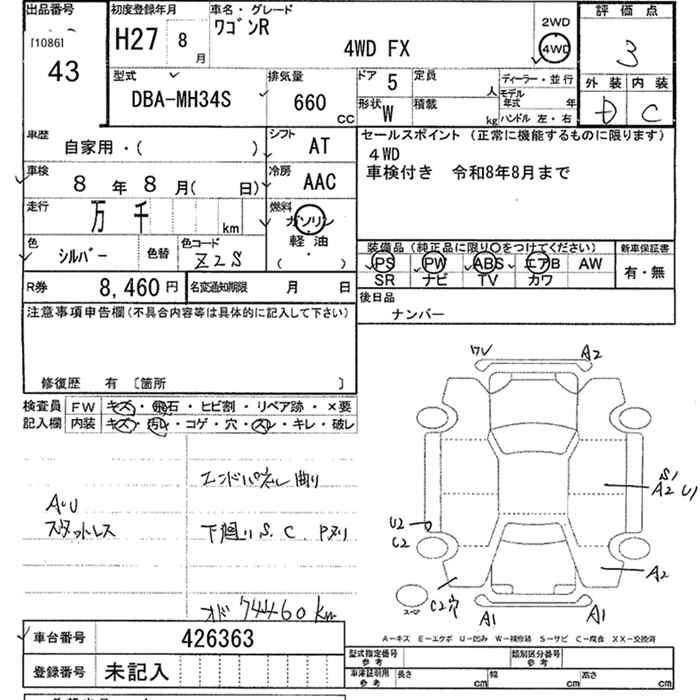 出品番号
[1086]
43
初度登録年月
H27 8 月
車名・グレード
ワゴンR
4WD FX
2WD
4WD
評価点
3
外装 内装
D C
型式
DBA-MH34S
排気量
660 CC
ドア 5
定員 人
形状 W
積載 kg
ディーラー・並行
モデル年式 年
ハンドル 左・右
車歴
自家用・( )
シフト AT
車検
8 年 8 月( 日)
冷房 AAC
走行
万 千 km
燃料
ガソリン
軽油
( ・ )
色 シルバー
色替
色コード Z2S
R券 8,460 円
名変通知期限 月 日
セールスポイント (正常に機能するものに限ります)
4WD
車検付き 令和8年8月まで
装備品 (純正品に限り○をつけてください)
新車保証書
PS PW ABS エアB AW
SR ナビ TV カワ
有・無
後日品
ナンバー
注意事項申告欄(不具合内容等は具体的に記入して下さい)
修復歴 有 〔箇所 〕
検査員 FW キズ・飛石・ヒビ割・リペア跡・×要
記入欄 内装 キズ・汚レ・コゲ・穴・スレ・キレ・破レ
エンドパネル曲り
A・U
スタットレス
下廻り S. C. Pヌリ
オド 74460 km
ワレ A2
S1
A2 U1
U2
C2
A2
C2穴
A1 A1
スペア
A-キズ E-エクボ U-凹み W-補修跡 S-サビ C-腐食 XX-交換済
車台番号 426363
登録番号 未記入
型式指定番号 参考
類別区分番号 参考
車庫証明用 参考
長さ cm 幅 cm 高さ cm